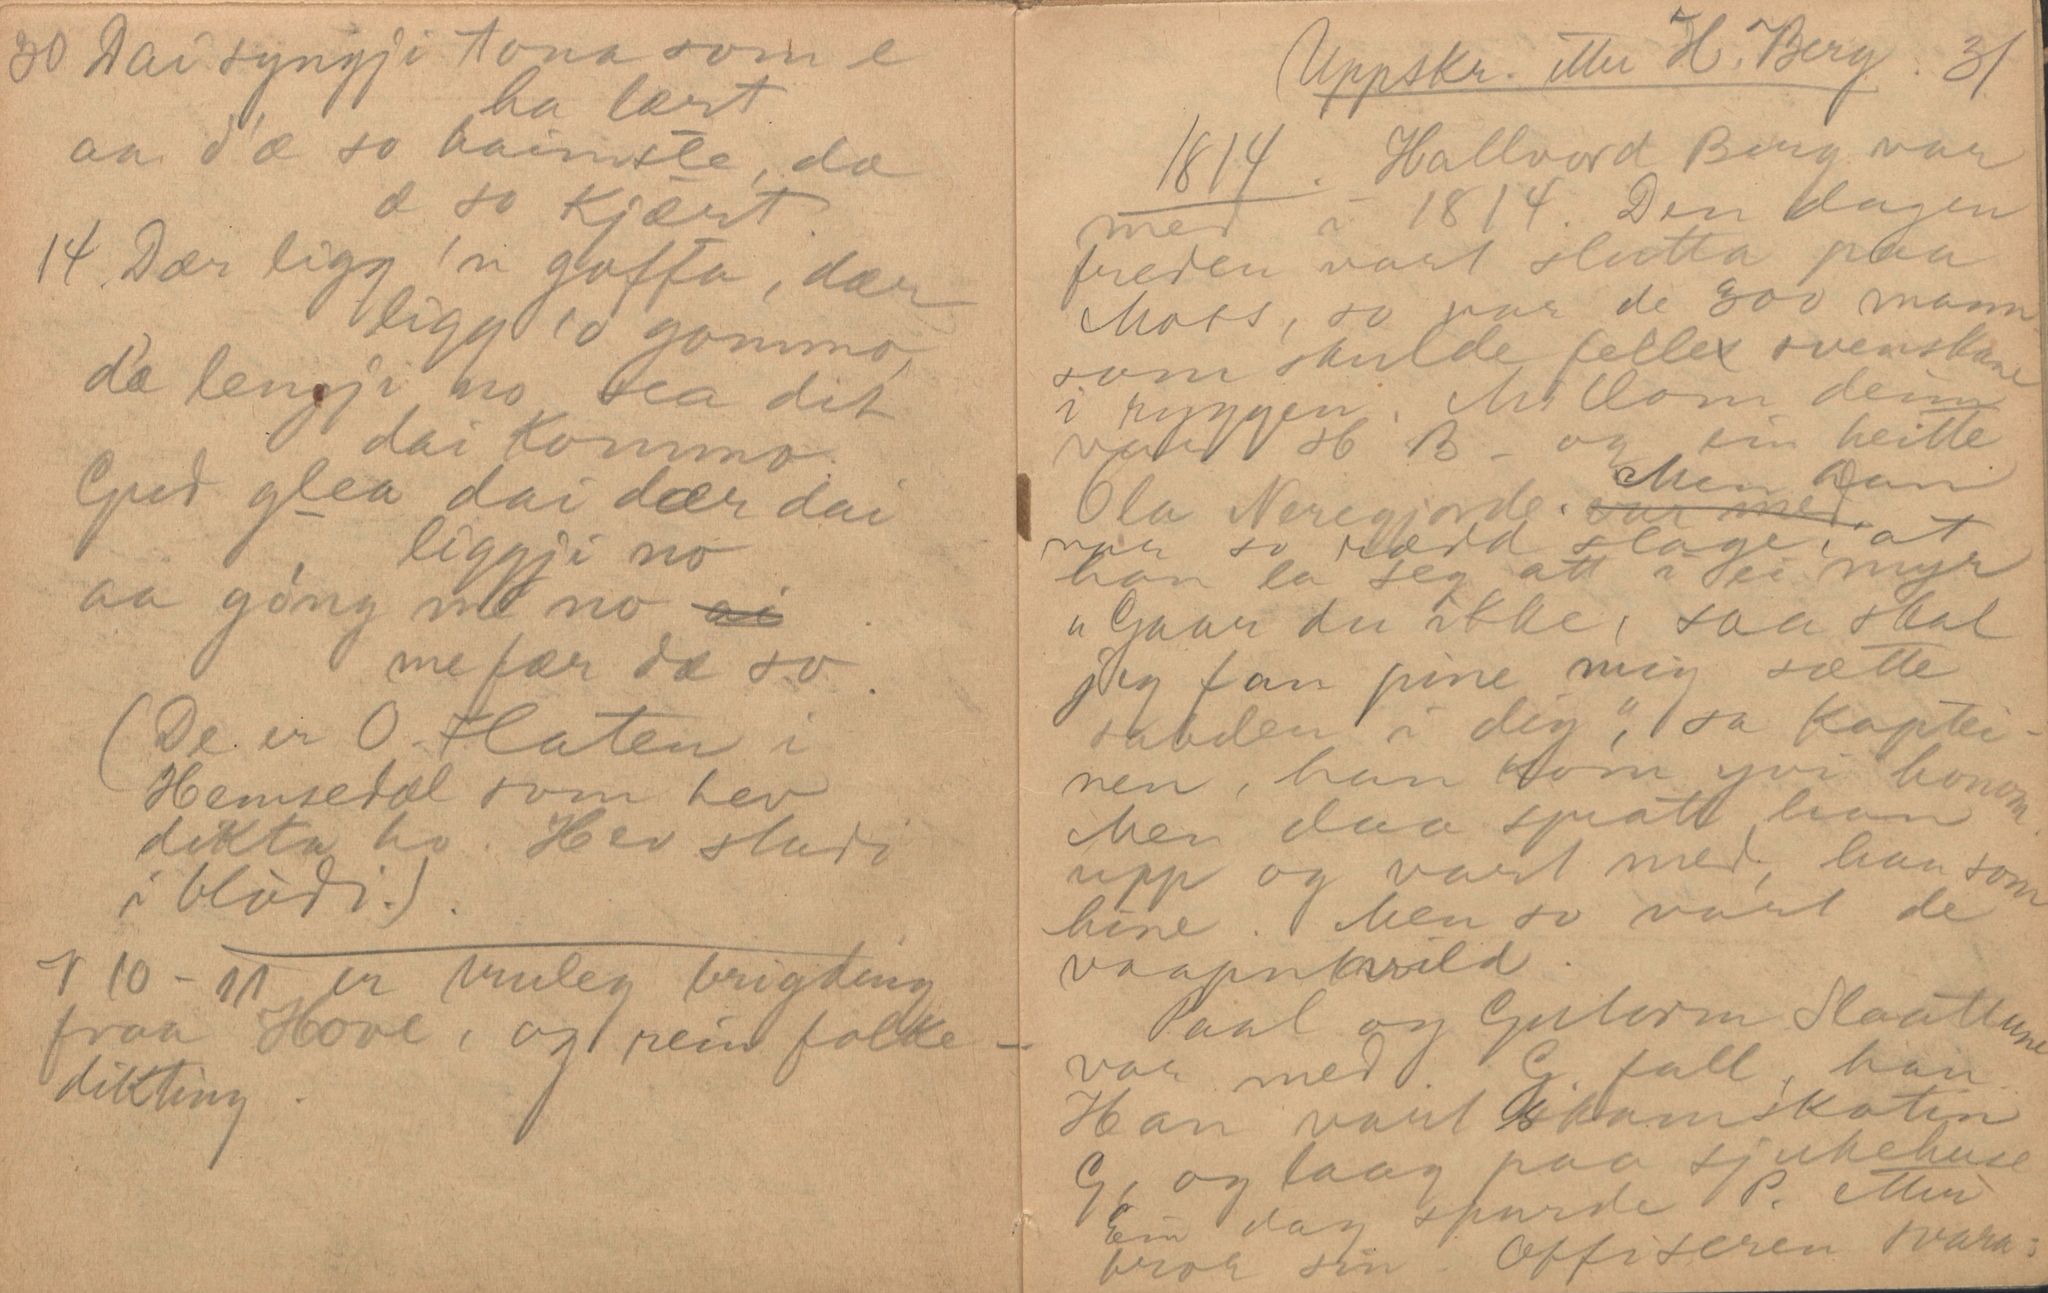 30 Dai syngji tona som e
ha lært
aa d'æ so haimsle, dæ
æ so kjært.
14 Dær ligg 'n goffa, dær
ligg 'o gommo,
d'æ lengji no sea dit
dai kommo.
Gud glea dai dær dai
liggji no
aa gøng me no ai
me fær dæ so.
(De er O. Flaten i
Hemsedal som hev
dikta ho. Hev stadi
i blødi.)
V 10-11 er truleg brigding
fraa Hove, og rein folke-
dikting.
Uppskr. etter H. Berg. 31
1814. Hallvord Berg var
med i 1814. Den dagen
freden vart slutta paa
Moss, so var de 300 mann
som skulde felle svenskane
i ryggen. Millom deim
var H B. og ein heitte
Men Dan
Ola Neregjorde. var med.
var so rædd slage, at
han la seg att i ei myr
"Gaar du ikke, saa skal
jeg fan pine mig sætte
sabden i dig", sa kaptei-
nen, han kom yvi honom.
Men daa spratt han
upp og vart med, han som
hine. Men so vart de
vaapnkvild.
Paal og Gutorm Slaattune
var med. G. fall, han
Han vart skamskotin
G, og laag paa sjukehuse
Ein dag spurde P. etter
bror sin. Offiseren svara: